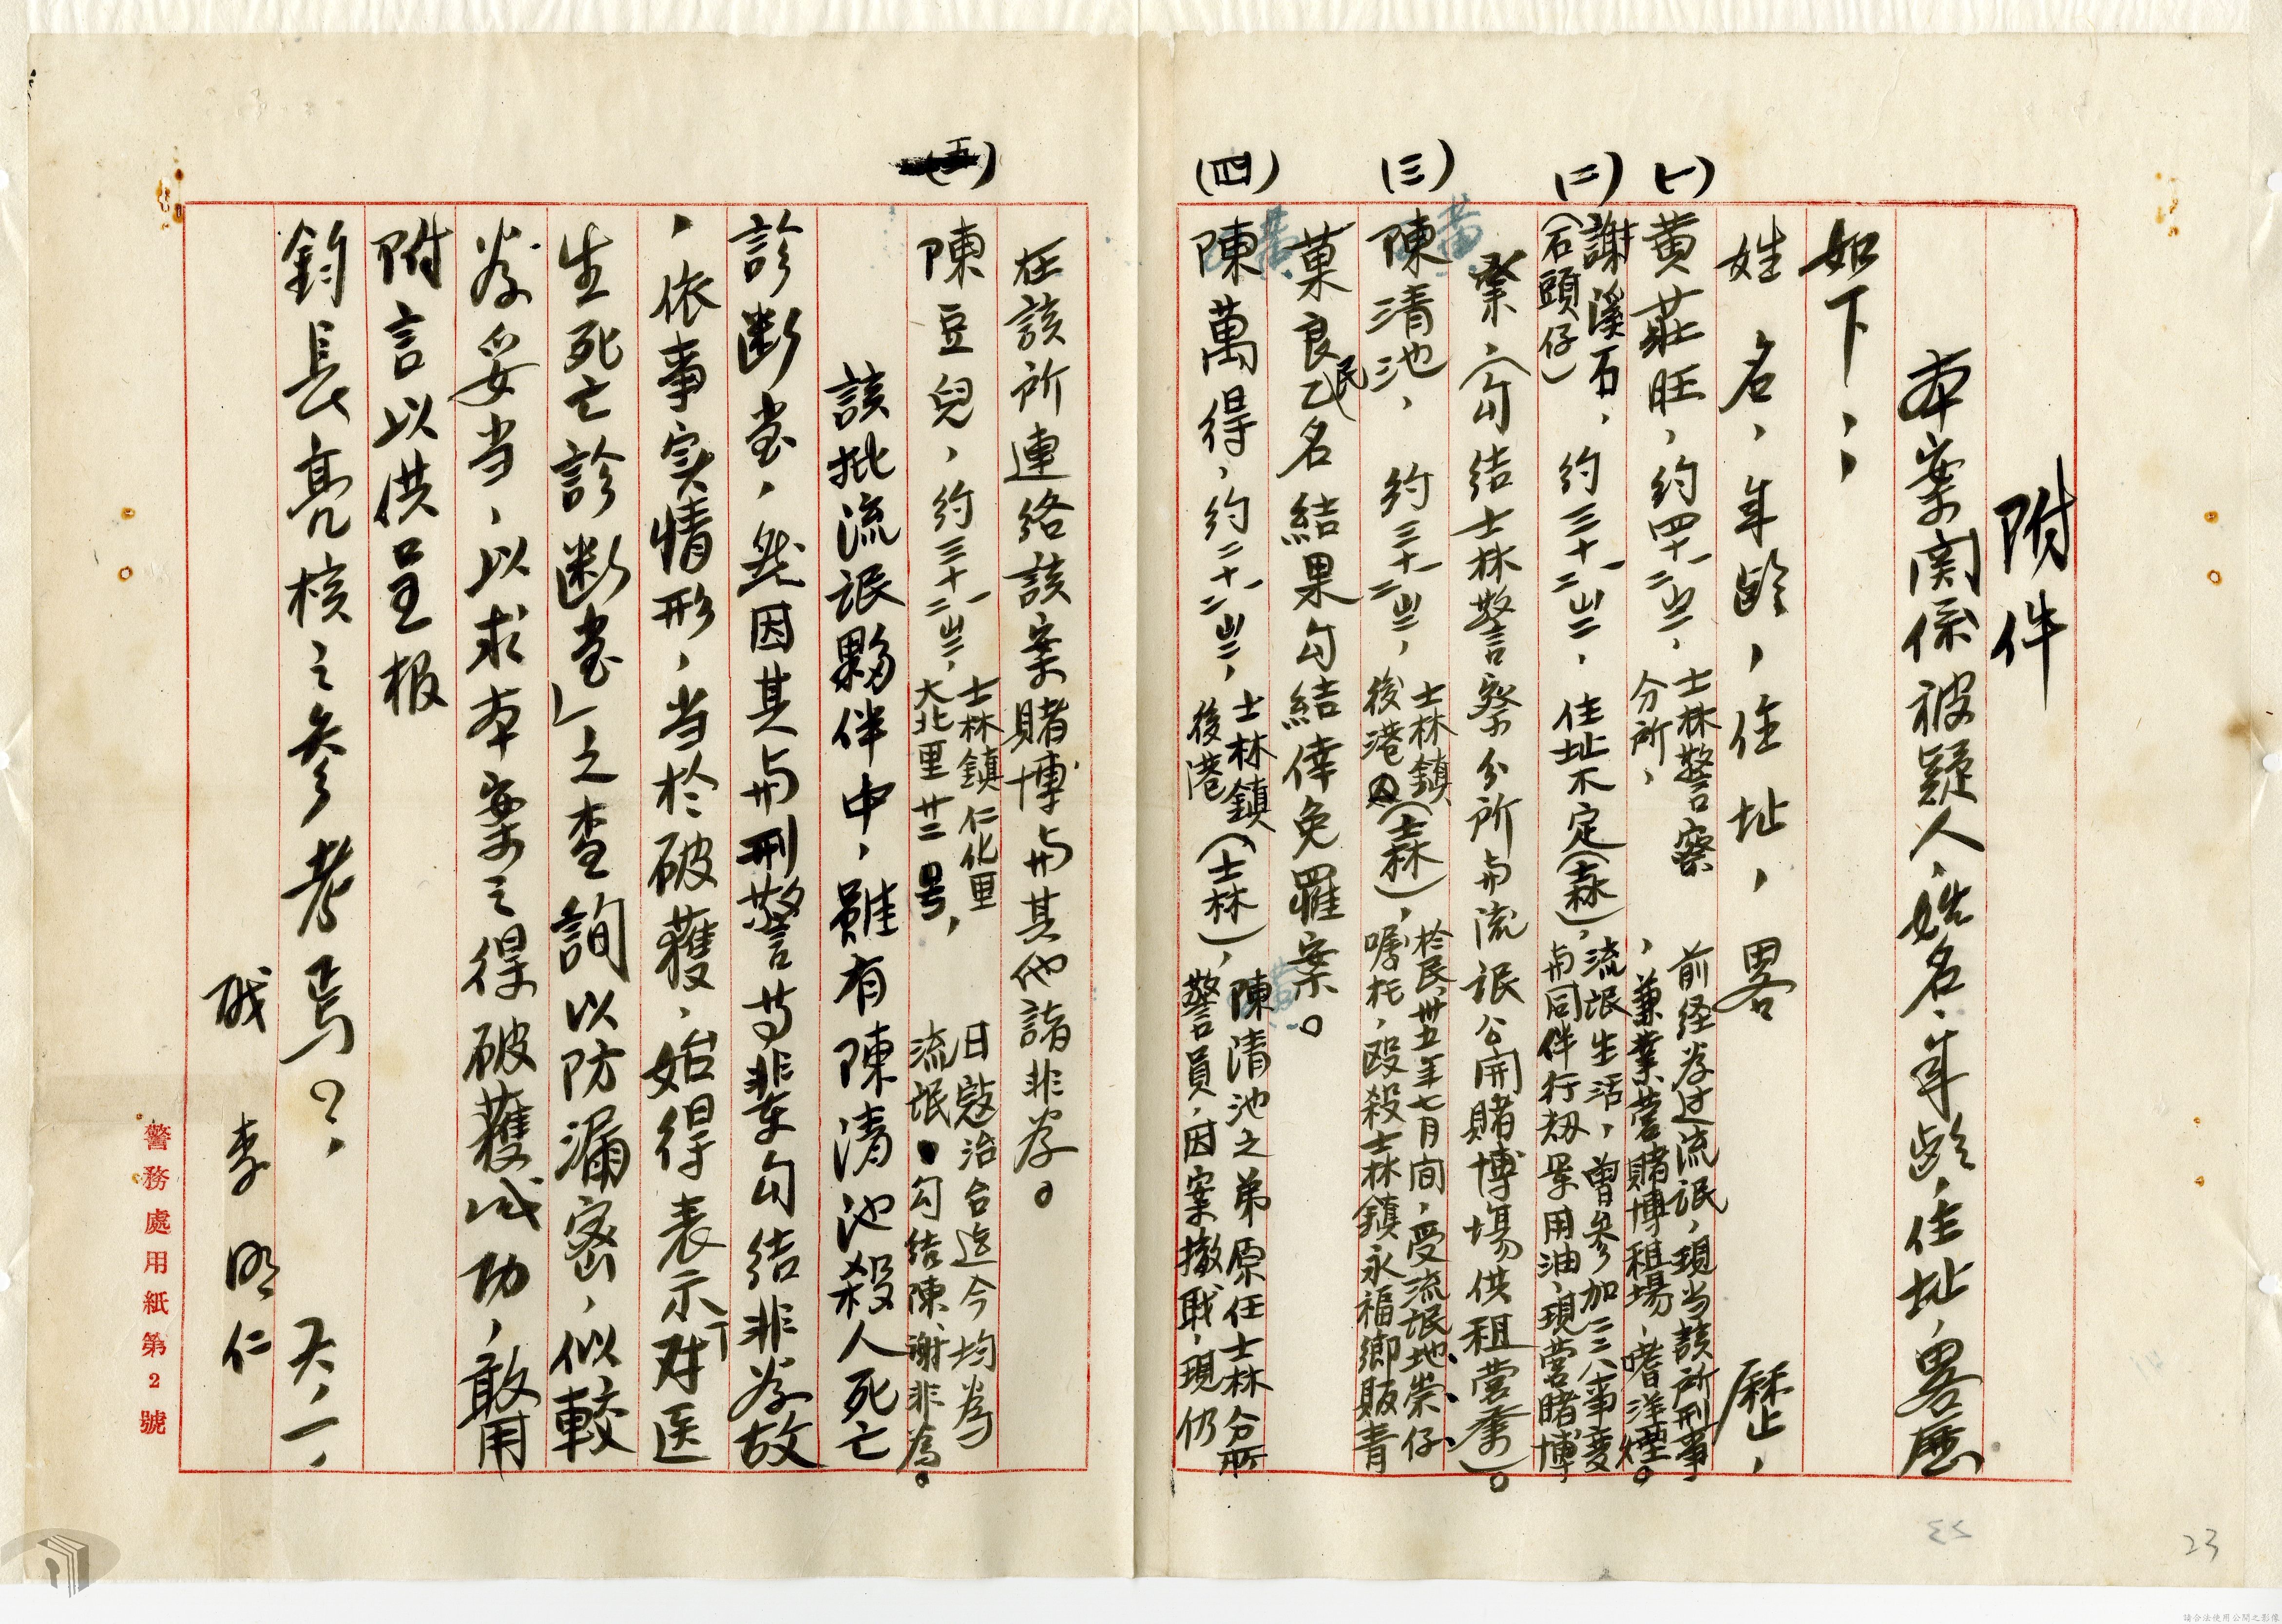 附件
本案関係被疑人、姓名、年齡、住址、畧歷
如下；
姓名，年齡，住址，畧歷，
(一)
黃莊旺，約四十一二歲，士林警察分所，前経為过流氓，現当該所刑事，兼業営賭博租場，嗜洋煙。
(二)
謝溪石，(石頭仔)約三十一二歲，住址不定(士林)，流氓生活，曽参加二二八事変与同伴行刼軍用油，現営賭博
業，(勾结士林警察分所与流氓公開賭博場供租営業)。
(三)
陳清池，約三十一二歲，士林鎮後港(士林)，於民卅五年七月间，受流氓地崇仔、嘱托，殴殺士林鎮永福鄉販青
菓良民乙名結果勾結倖免罹案。
(四)
陳萬得，約二十一二歲，士林鎮後港(士林)，陳清池之弟原任士林分所警員，因案撤耺，現仍
在該所連絡該案賭博与其他諸非為。
(五)
陳豆兒，約三十一二歲，士林鎮仁化里大北里廿二号，日寇治台迄今均為流氓勾结陳、謝非為。
該批流氓夥伴中，雖有陳清池殺人死亡
診断書，然因其与刑警等輩勾结非為故
，依事实情形，当於破獲，始得表示「对医
生死亡診断書」之查詢以防漏密，似較
為妥当，以求本案之得破獲成功，敢用
附言以供呈报
鈞長亮核之参考焉？，
六，一，
職 李明仁
警務處用紙第2號
23
請合法使用公開之影像